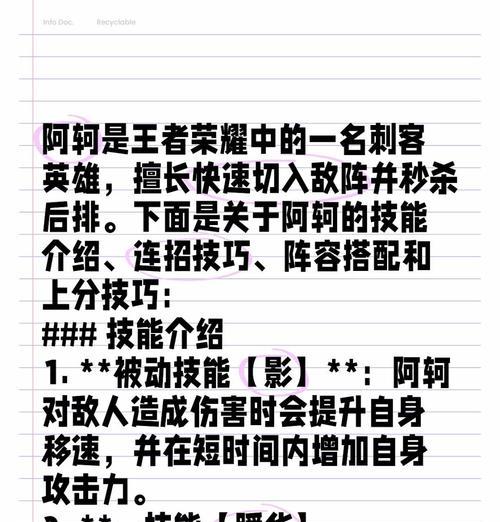 Info Doc. Recyclable
阿轲是王者荣耀中的一名刺客
英雄，擅长快速切入敌阵并秒杀
后排。下面是关于阿轲的技能
介绍、连招技巧、阵容搭配和
上分技巧：
### 技能介绍
1. **被动技能【影】**：阿轲
对敌人造成伤害时会提升自身
移速，并在短时间内增加自身
攻击力。